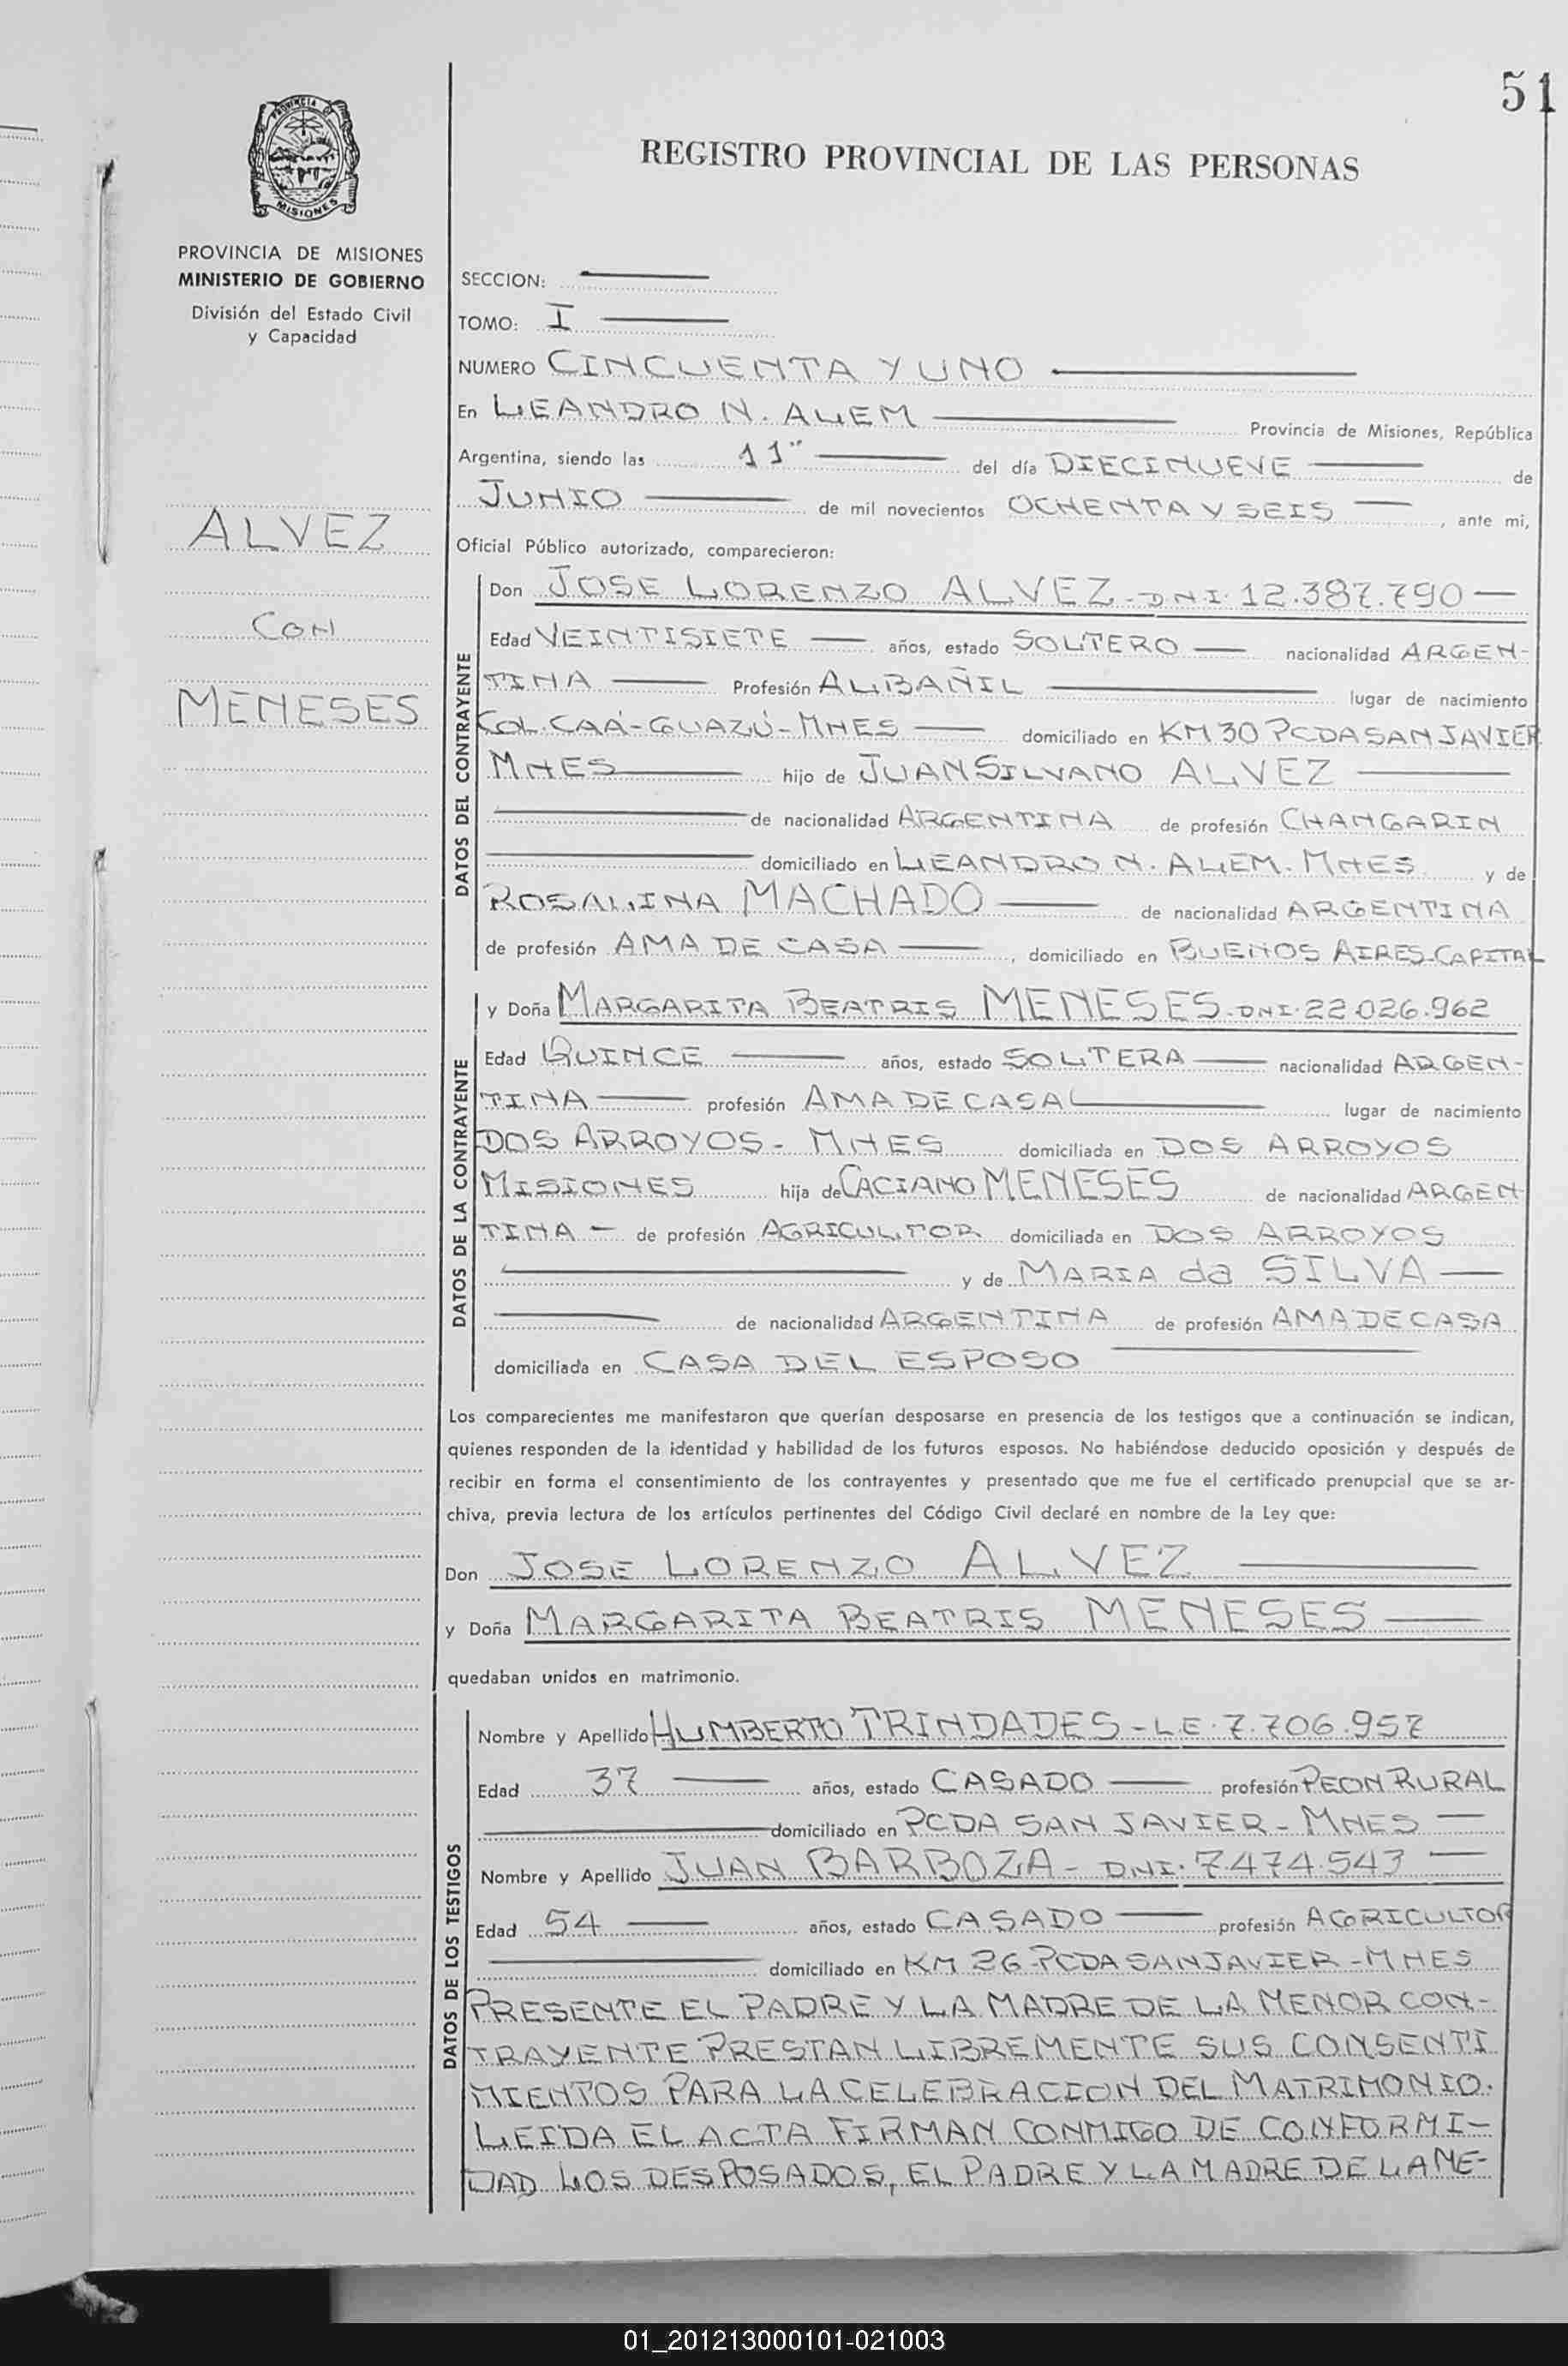 51
PROVINCIA DE
MISIONES
REGISTRO PROVINCIAL DE LAS PERSONAS
PROVINCIA DE MISIONES
MINISTERIO DE GOBIERNO
División del Estado Civil
y Capacidad
ALVEZ
CON
MENESES
SECCION:
TOMO: I
NUMERO CINCUENTA Y UNO
En LEANDRO N. ALEM Provincia de Misiones, República
Argentina, siendo las 11" del día DIECINUEVE de
JUNIO de mil novecientos OCHENTA Y SEIS, ante mi,
Oficial Público autorizado, comparecieron:
DATOS DEL CONTRAYENTE
Don JOSE LORENZO ALVEZ - DNI. 12.387.790 —
Edad VEINTISIETE — años, estado SOLTERO — nacionalidad ARGEN-
TINA — Profesión ALBAÑIL — lugar de nacimiento
COL. CAÁ-GUAZÚ - MNES — domiciliado en KM 30 PCDA SAN JAVIER
MNES — hijo de JUAN SILVANO ALVEZ —
— de nacionalidad ARGENTINA de profesión CHANGARIN
— domiciliado en LEANDRO N. ALEM. MNES y de
ROSALINA MACHADO — de nacionalidad ARGENTINA
de profesión AMA DE CASA —, domiciliado en BUENOS AIRES-CAPITAL
DATOS DE LA CONTRAYENTE
y Doña MARGARITA BEATRIS MENESES - DNI. 22.026.962
Edad QUINCE — años, estado SOLTERA — nacionalidad ARGEN-
TINA — profesión AMA DE CASA — lugar de nacimiento
DOS ARROYOS - MNES domiciliada en DOS ARROYOS
MISIONES hija de CACIANO MENESES de nacionalidad ARGEN-
TINA — de profesión AGRICULTOR domiciliada en DOS ARROYOS
— y de MARIA da SILVA —
— de nacionalidad ARGENTINA de profesión AMA DE CASA
domiciliada en CASA DEL ESPOSO —
Los comparecientes me manifestaron que querían desposarse en presencia de los testigos que a continuación se indican,
quienes responden de la identidad y habilidad de los futuros esposos. No habiéndose deducido oposición y después de
recibir en forma el consentimiento de los contrayentes y presentado que me fue el certificado prenupcial que se ar-
chiva, previa lectura de los artículos pertinentes del Código Civil declaré en nombre de la Ley que:
Don JOSE LORENZO ALVEZ —
y Doña MARGARITA BEATRIS MENESES —
quedaban unidos en matrimonio.
DATOS DE LOS TESTIGOS
Nombre y Apellido HUMBERTO TRINDADES - L.E. 7.706.957
Edad 37 — años, estado CASADO — profesión PEON RURAL
— domiciliado en PCDA SAN JAVIER - MNES —
Nombre y Apellido JUAN BARBOZA - DNI. 7.474.543 —
Edad 54 — años, estado CASADO — profesión AGRICULTOR
— domiciliado en KM 26 - PCDA SAN JAVIER - MNES
PRESENTE EL PADRE Y LA MADRE DE LA MENOR CON-
TRAYENTE PRESTAN LIBREMENTE SUS CONSENTI
MIENTOS PARA LA CELEBRACION DEL MATRIMONIO.
LEIDA EL ACTA FIRMAN CONMIGO DE CONFORMI-
DAD LOS DESPOSADOS, EL PADRE Y LA MADRE DE LA ME-
01_201213000101-021003